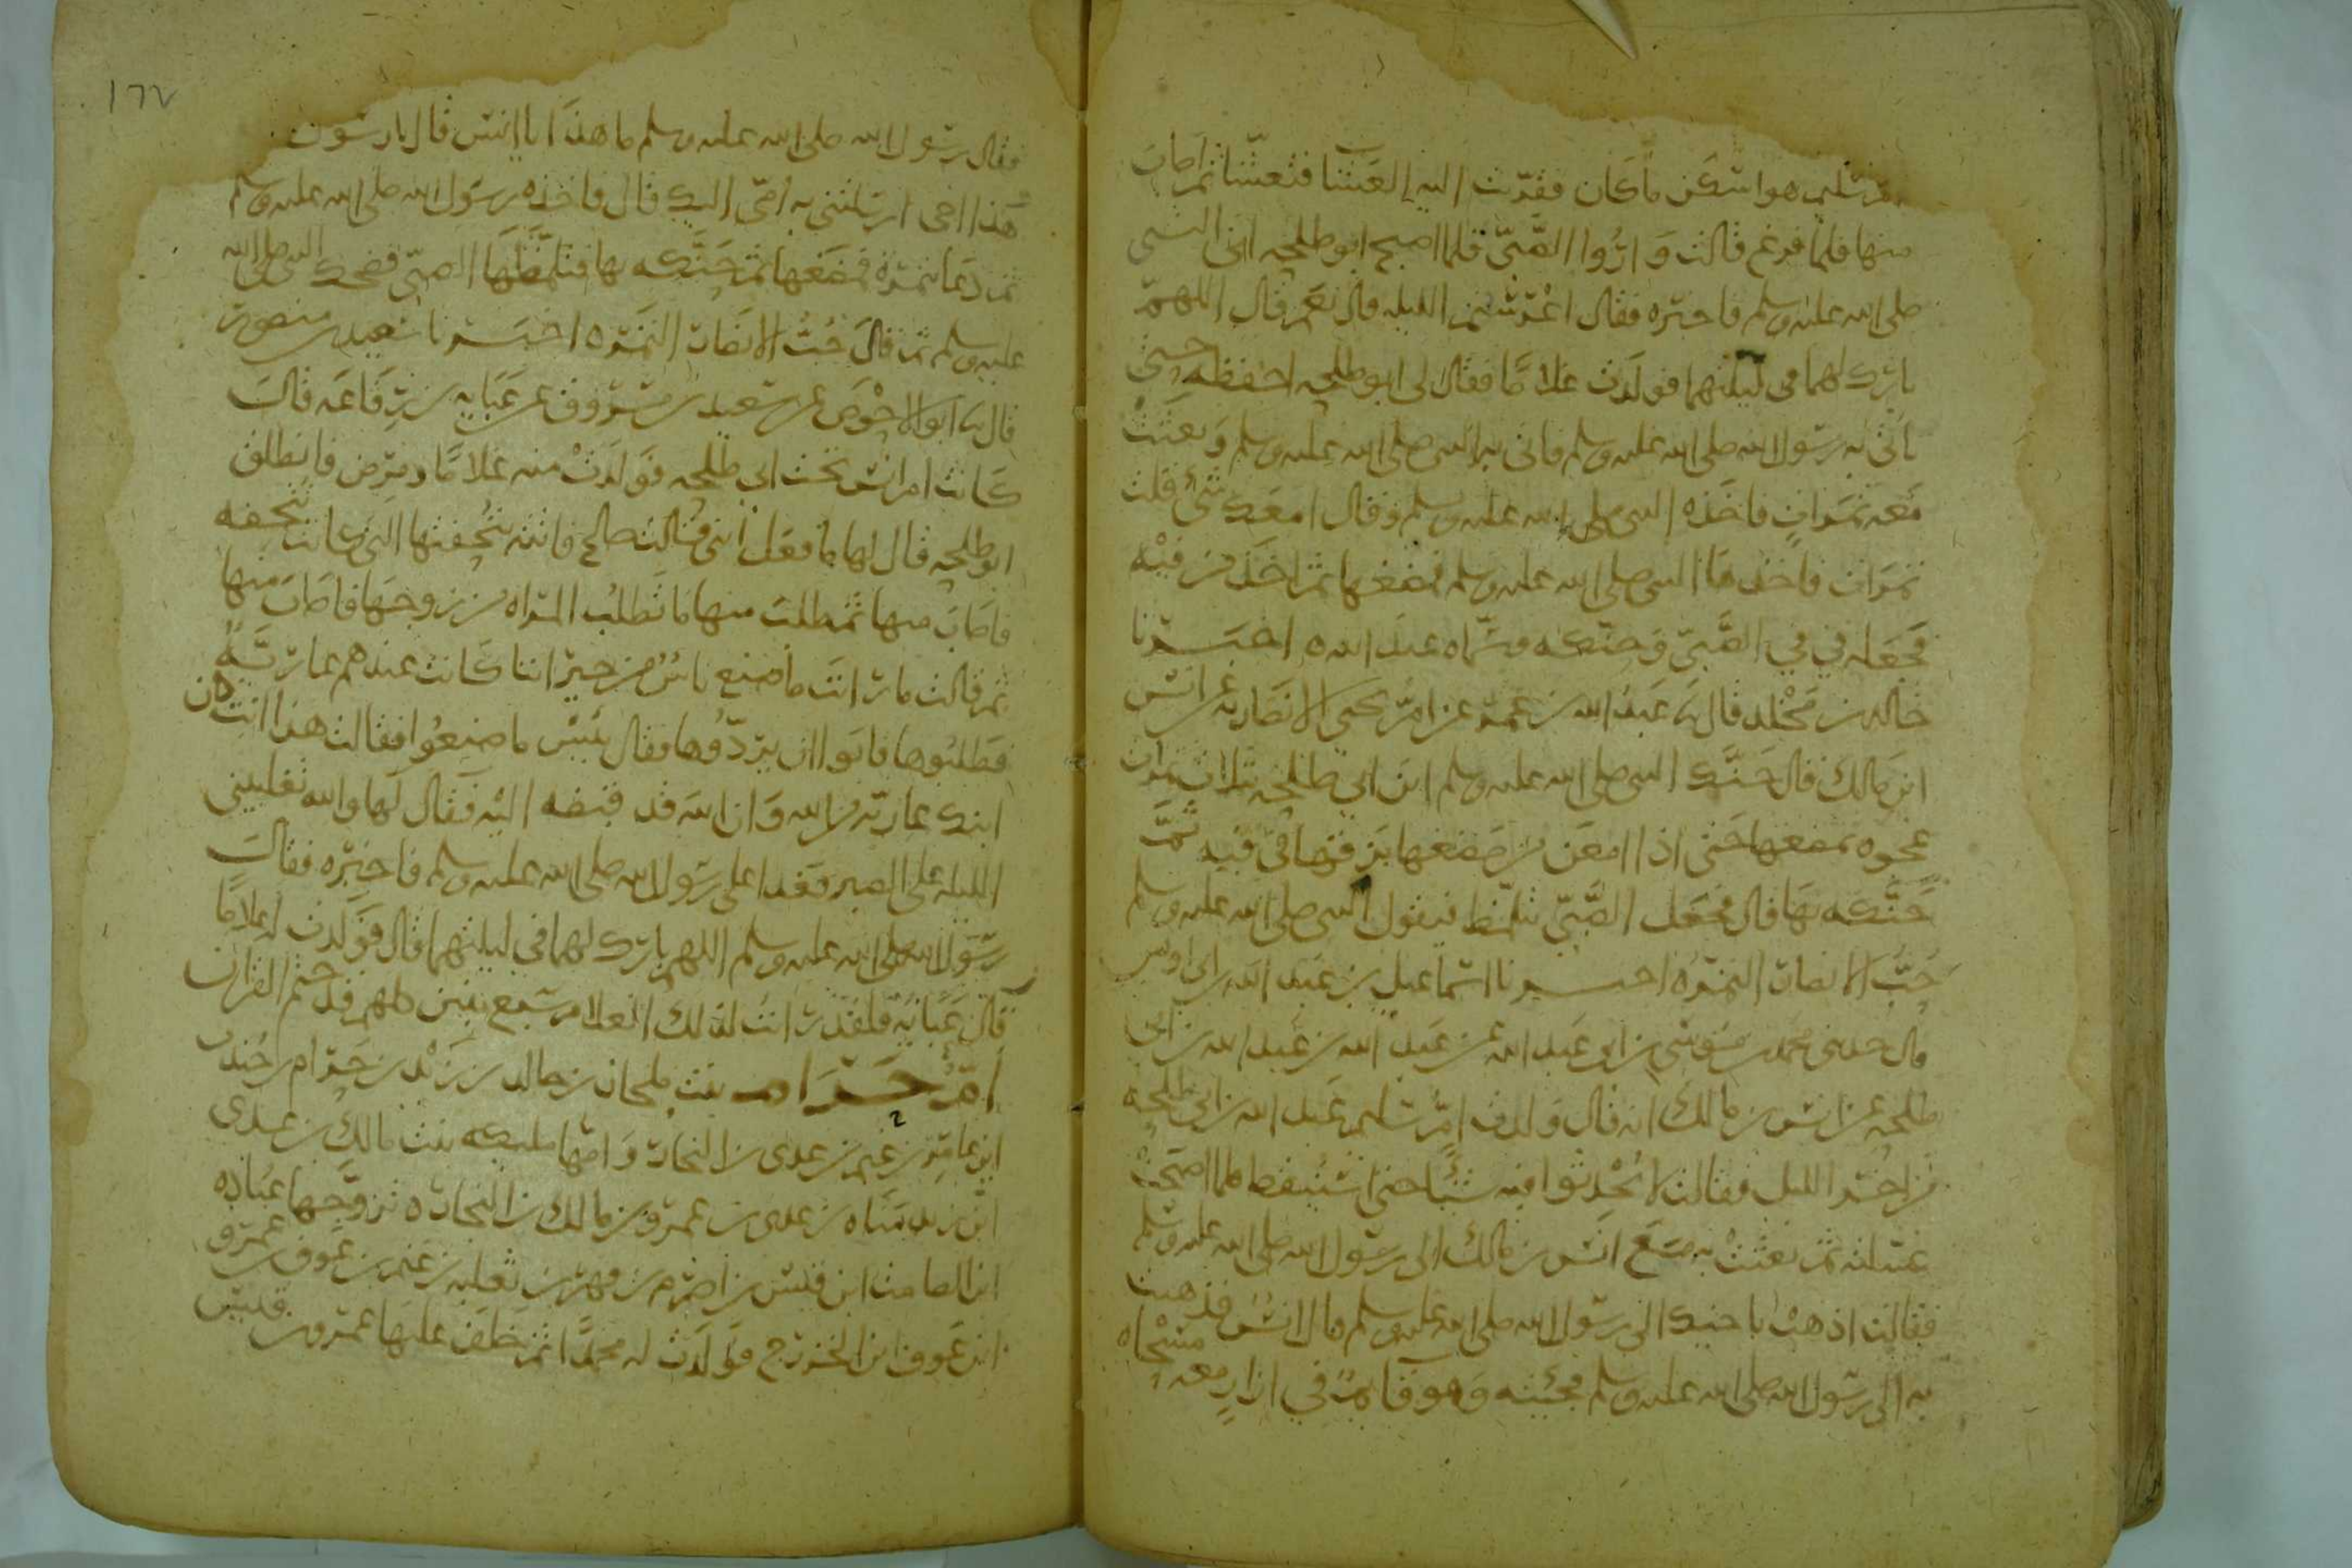 ام سليم هو اسكن ما كان فقربت اليه العشا فتعشا ثم اصاب
منها فلما فرغ قالت واروا الصبي فلما اصبح ابو طلحه اتى النبي
صلى الله عليه وسلم فاخبره فقال اعرستم الليله قال نعم قال اللهم
بارك لهما في ليلتهما فولدت غلاما فقال لى ابو طلحه احفظه حتى
تاتي به رسول الله صلى الله عليه وسلم فاتى به النبي صلى الله عليه وسلم وبعثت
معه تمرات فاخذه النبي صلى الله عليه وسلم وقال امعك شئ قلت
تمرات فاخذها النبي صلى الله عليه وسلم فمضغها ثم اخذ من فيه
فجعله في في الصبي وحنكه وسماه عبد الله ه اخبرنا
خالد بن مخلد قال نا عبد الله بن عمر عن ام يحيى الانصاريه عن انس
ابن مالك قال حنك النبي صلى الله عليه وسلم ابن ابي طلحه بثلاث تمرات
عجوه مضغها حتى اذا امعن من مضغها بزقها في فيه ثم
حنكه بها قال فجعل الصبي يتلمظ فيقول النبي صلى الله عليه وسلم
حب الانصار التمره اخبرنا اسماعيل بن عبد الله بن ابي اويس
قال حدثني محمد بن موسى بن ابي عبد الله عن عبد الله بن عبد الله بن ابي
طلحه عن انس بن مالك انه قال ولدت ام سليم عبد الله بن ابي طلحه
من اخر الليل فقالت لا تحدثوا فيه شيئا حتى استيقظ فلما اصبحت
غسلته ثم بعثت به مع انس بن مالك الى رسول الله صلى الله عليه وسلم
فقالت اذهب باخيك الى رسول الله صلى الله عليه وسلم قال انس فذهبت
به الى رسول الله صلى الله عليه وسلم فجئته وهو قايم في ازار معه مسحاه
١٦٧
فقال رسول الله صلى الله عليه وسلم ما هذا يا انس قال يا رسول
هذا اخى ارسلتني به امي اليك قال فاخذه رسول الله صلى الله عليه وسلم
ثم دعا بتمرة فمضغها ثم حنكه بها فتلمظها الصبي فضحك النبي صلى الله
عليه وسلم ثم قال حب الانصار التمره اخبرنا سعيد بن منصور
قال نا ابو الاحوص عن سعيد بن مسروق عن عبايه بن رفاعه قال
كانت ام انس تحت ابي طلحه فولدت منه غلاما ومرض فانطلق
ابو طلحه قال لها ما فعل ابني قالت صالح فاتته بتحفتها التي كانت تتحفه
فاصاب منها ثم طلبت منها ما تطلب المراه من زوجها فاصاب منها
ثم قالت ما رايت ما صنع ناس من جيراننا كانت عندهم عارية
فطلبوها فابوا ان يردوها فقال بئس ما صنعوا فقالت هذا انت كان
ابنك عاريه من الله وان الله قد قبضه اليه فقال لها والله لا تغلبيني
الليله على الصبر فغدا على رسول الله صلى الله عليه وسلم فاخبره فقال
رسول الله صلى الله عليه وسلم اللهم بارك لهما في ليلتهما قال فولدت غلاما
قال عبايه فلقد رايت لذلك الغلام سبع بنين كلهم قد ختم القران
ام حرام بنت ملحان بن خالد بن زيد بن حرام بن جندب
ابن عامر بن غنم بن عدى بن النجار وامها مليكه بنت مالك بن عدى
ابن زيد مناه بن عدى بن عمرو بن مالك بن النجار ه تزوجها عباده
ابن الصامت ابن قيس بن اصرم بن فهر بن ثعلبه بن غنم بن عوف بن عمرو
ابن عوف ابن الخزرج فولدت له محمدا ثم خلف عليها عمرو بن قيس